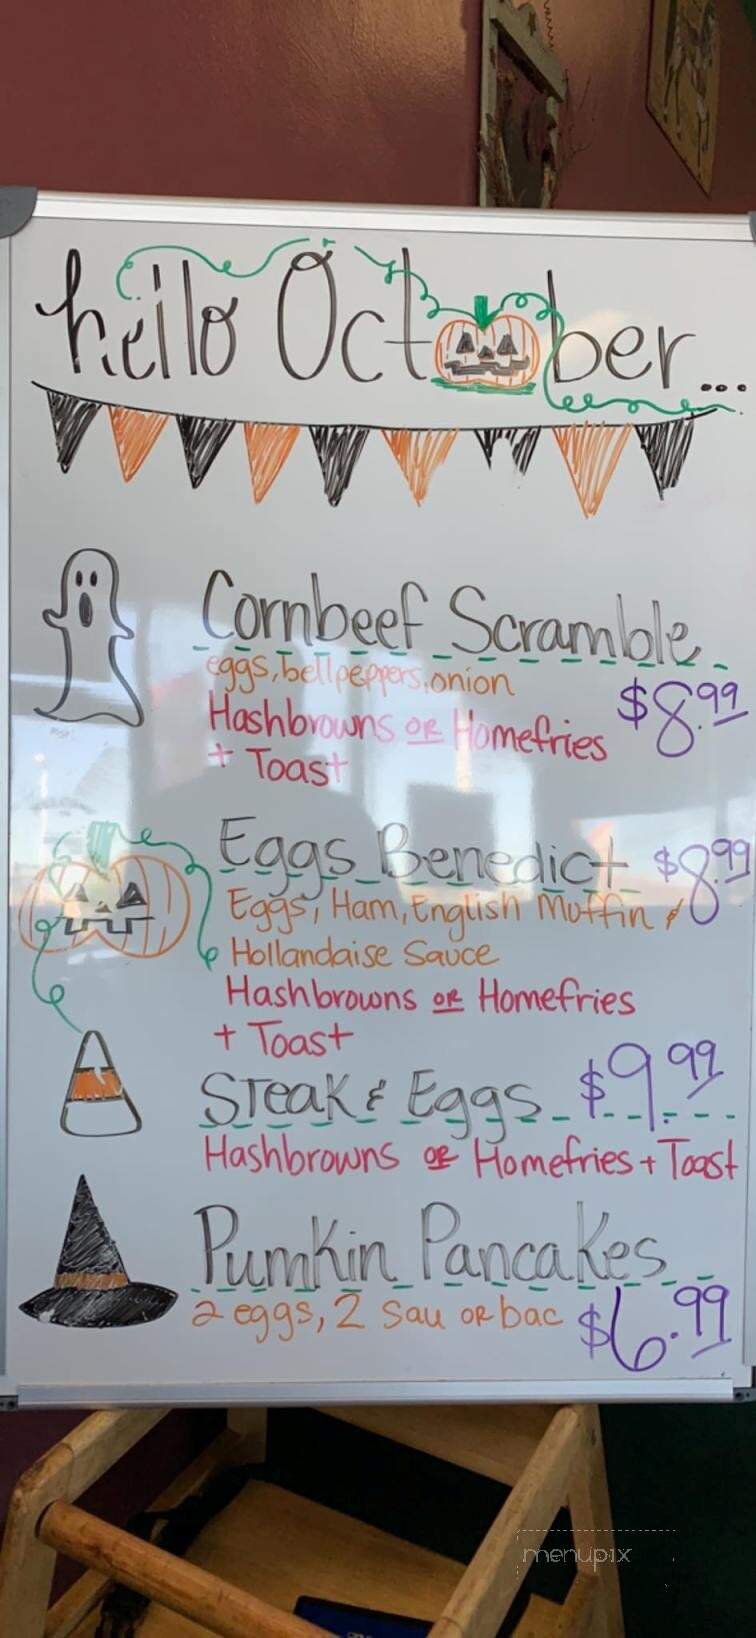 hello October...
Cornbeef Scramble
eggs, bell peppers, onion
$8.99
Hashbrowns OR Homefries
+ Toast
Eggs Benedict $8.99
Eggs, Ham, English Muffin &
Hollandaise Sauce
Hashbrowns OR Homefries
+ Toast
Steak & Eggs $9.99
Hashbrowns OR Homefries + Toast
Pumkin Pancakes
2 eggs, 2 sau OR bac $6.99
menupix